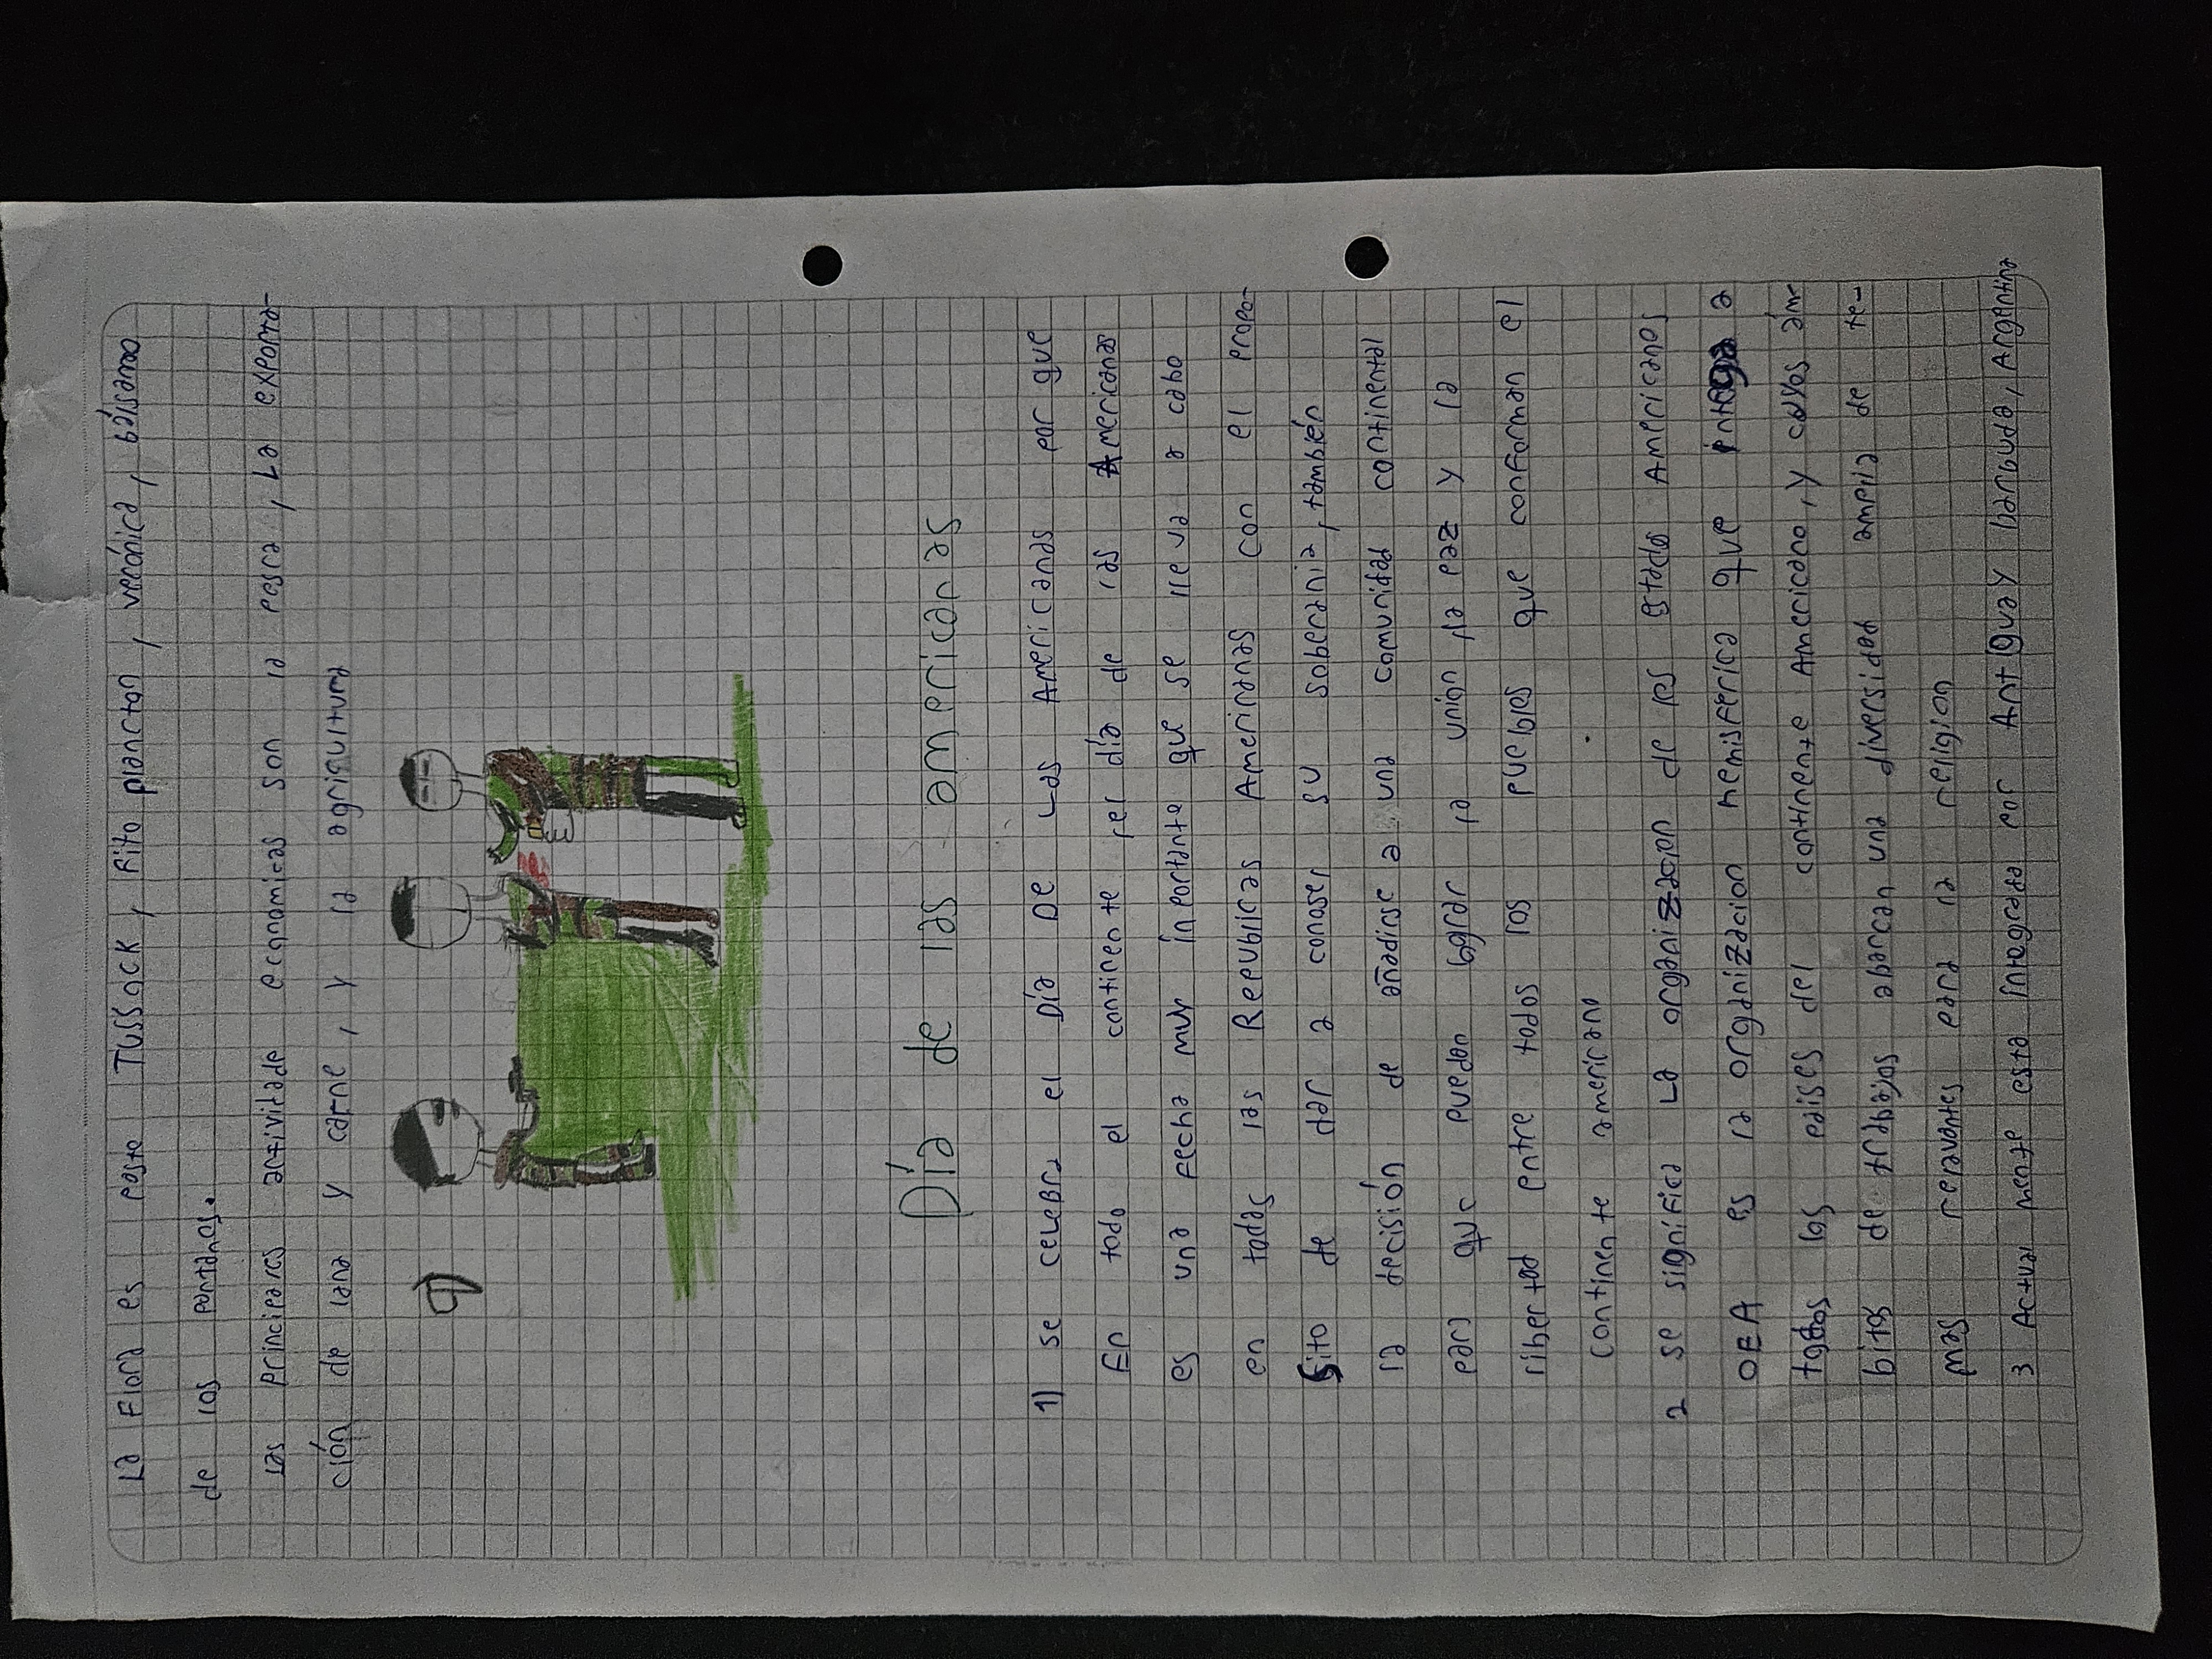 La Flora es pasto TUSSOCK, Fito plancton, verónica, bálsamo
de los pantanos.
Las principales actividade economicas son la pesca, La exporta-
ción de lana y carne, y la agricultura
9)
Día de las americanas
1) se celebra el Día De Las Americanas por que
En todo el continente, el día de las Americanas
es una fecha muy inportante que se lleva a cabo
en todas las Republicas Americanas con el propo-
sito de dar a conoser su soberania, también
la decisión de añadirse a una comunidad continental
para que puedan lograr la union, la paz y la
libertad entre todos los pueblos que conforman el
continente americano
2 se significa La organizacion de los estados Americanos
OEA es la organizacion hemisferica que integra a
todos los paises del continente Americano, y cuyos ám-
bitos de trabajos abarcan una diversidad amplia de te-
mas relevantes para la religion
3 Actual mente esta integrada por Antigua y barbuda, Argentina